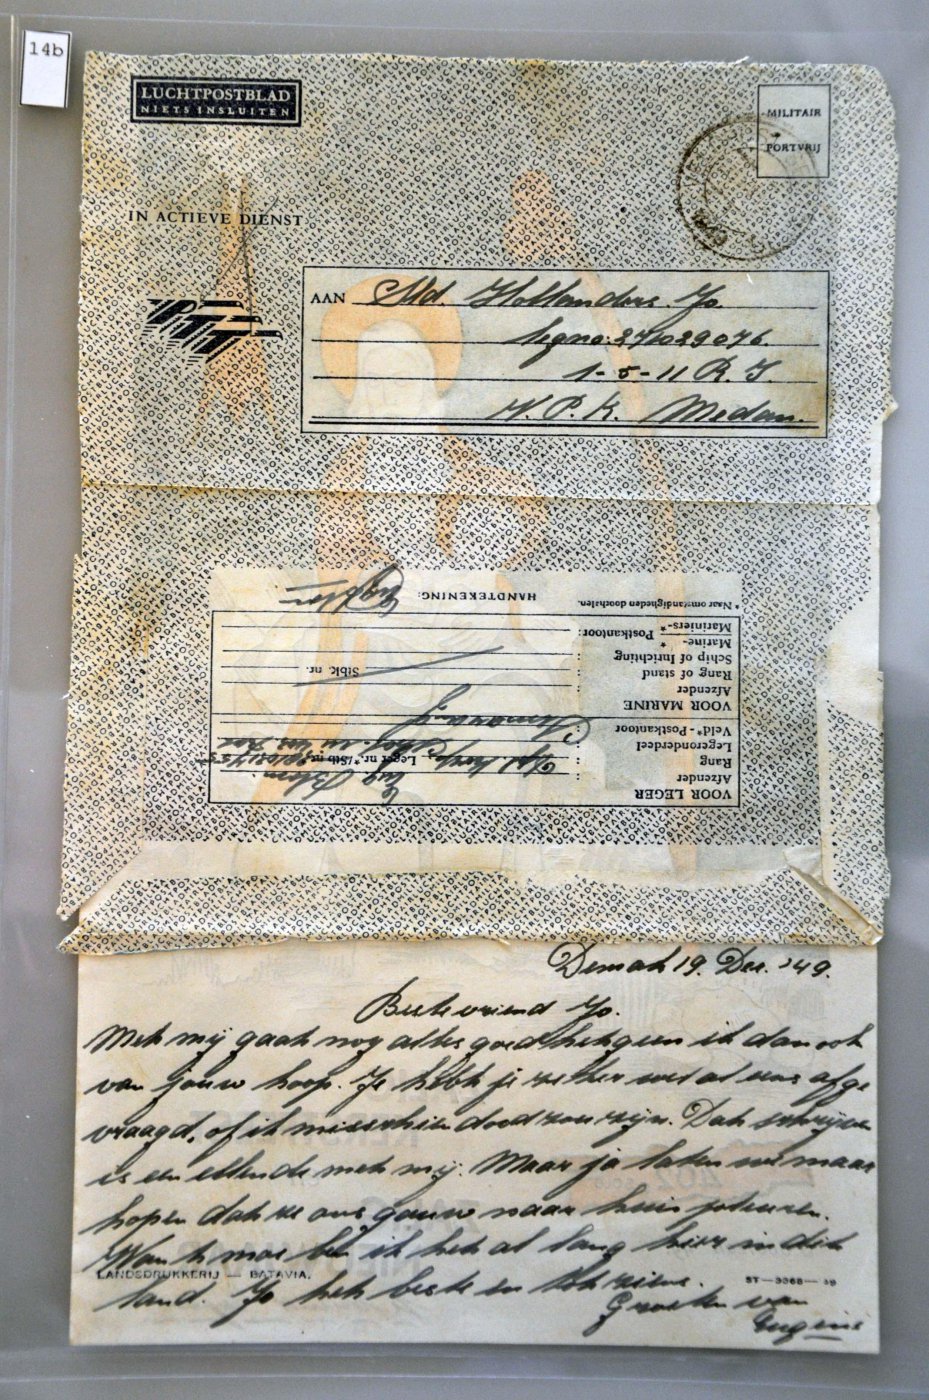 14b
LUCHTPOSTBLAD
NIETS INSLUITEN
MILITAIR
PORTVRIJ
IN ACTIEVE DIENST
PTT
AAN Sld Hollanders Jo
legno: 271029076.
1-5-11 R.I.
V.P.K. Medan.
VOOR LEGER
Afzender
Rang : Leger nr*/Stb nr*
Legeronderdeel
Veld*-Postkantoor : Semarang
VOOR MARINE
Afzender
Rang of stand : Stbk. nr.
Schip of Inrichting
Marine- * Postkantoor:
Mariniers- *
* Naar omstandigheden doorhalen. HANDTEKENING:
Demak 19. Dec. '49.
Beste vriend Jo.
Met mij gaat nog alles goed hetgeen ik dan ook
van jouw hoop. Je hebt je zeker wel al eens afge
vraagd, of ik misschien dood zou zijn. Dat schrijven
is een ellende met mij. Maar ja laten we maar
hopen dat ze ons gauw naar huis sturen.
Want moe ben ik het al lang hier in dit
LANDSDRUKKERIJ — BATAVIA.
land. Jo het beste en tot ziens.
Groeten van
Eugene